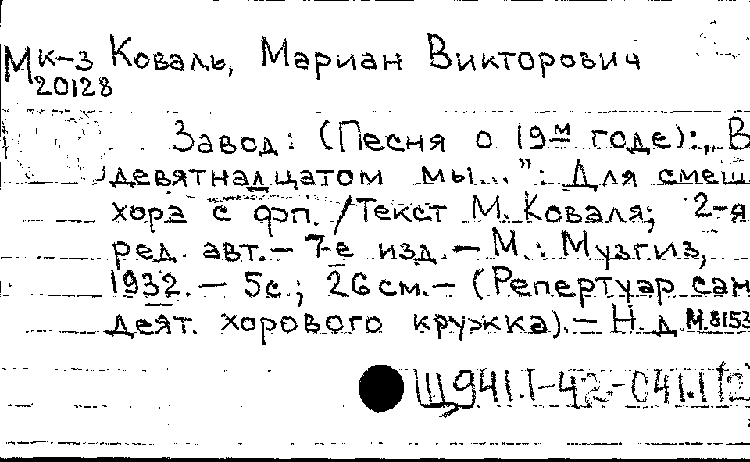 Мк-з Коваль, Мариан Викторович
20128
Завод: (Песня о 19м годе): „В
девятнадцатом мы...": Для смеш
хора с фп. / Текст М. Коваля; 2-я
ред. авт. – 7-е изд. – М.: Музгиз,
1932. – 5с.; 26 см. – (Репертуар сам
деят. хорового кружка). – Н. д. М.8153
Щ941.1-42-041.1